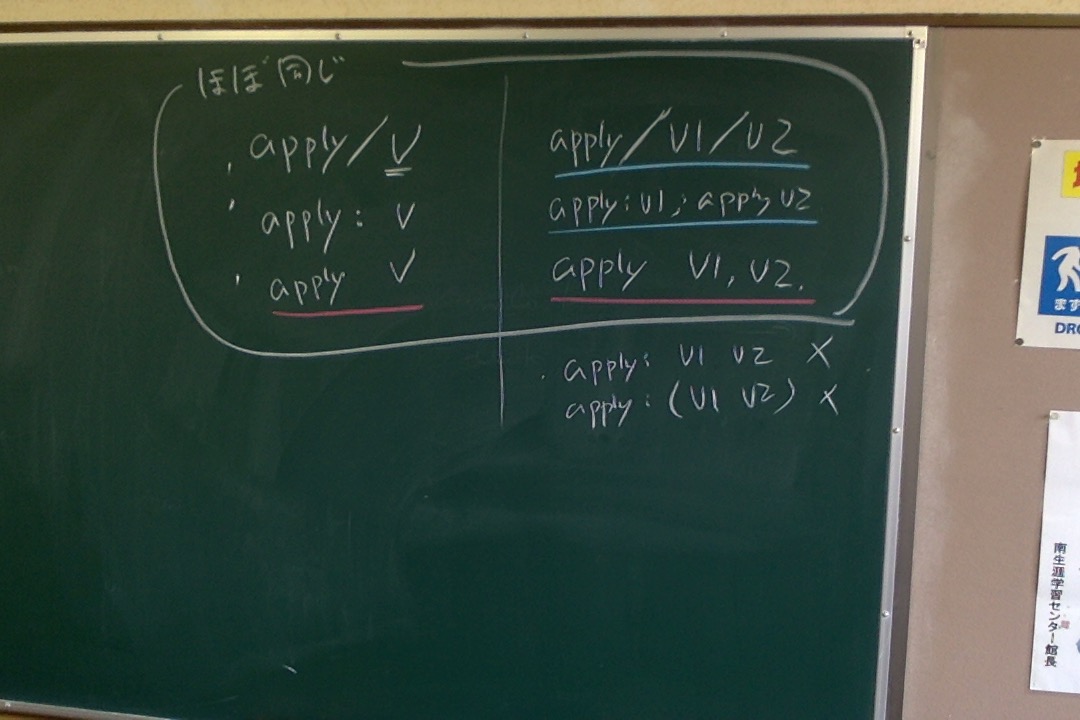 ほぼ同じ
apply/V
apply: V
apply V
apply/V1/V2
apply:V1; apply V2
apply V1, V2.
apply: V1 V2 X
apply: (V1 V2) X
まず
DRO
南生涯学習センター館長